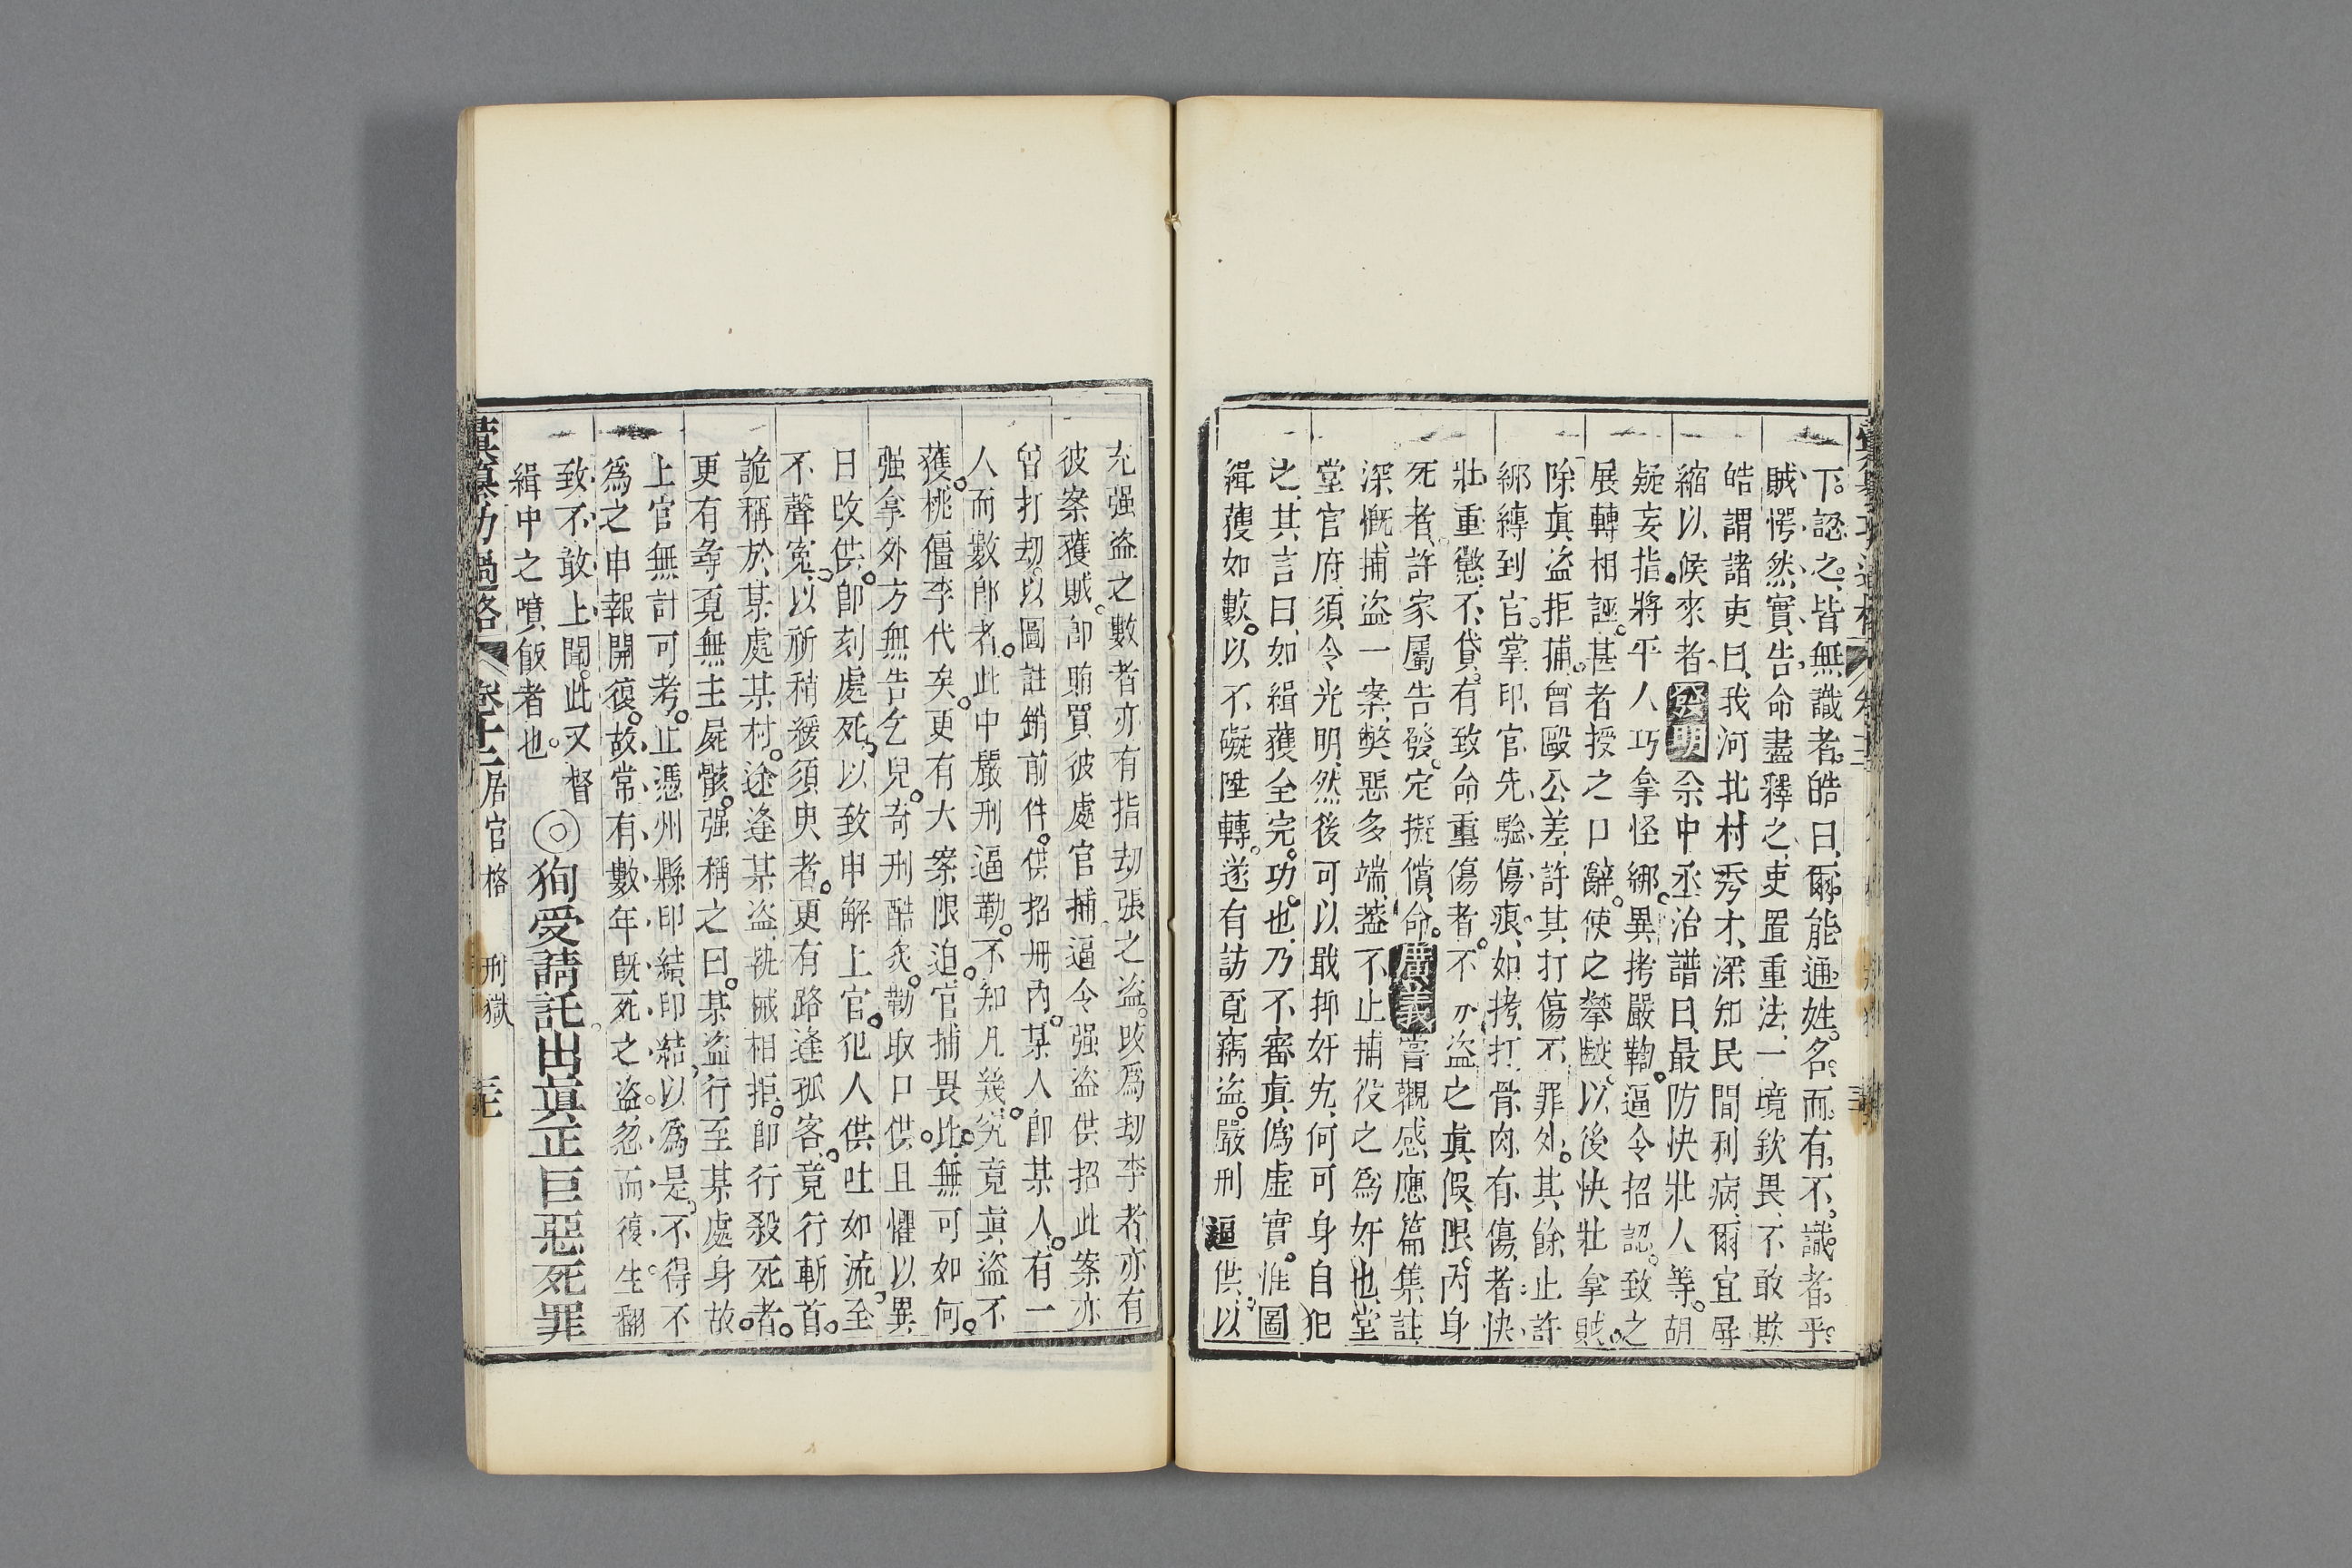 下認之皆無識者皓曰爾能通姓名而有不識者乎
賊愕然實告命盡釋之吏置重法一境欽畏不敢欺
皓謂諸吏曰我河北村秀才深知民間利病爾宜屏
縮以候來者發明佘中丞治譜曰最防快壯人等胡
疑妄指將平人巧拿怪綁異拷嚴鞫逼令招認致之
展轉相誣甚者授之口辭使之攀駮以後快壯拿賊
除真盜拒捕曾毆公差許其打傷不罪外其餘止許
綁縳到官掌印官先騐傷痕如拷打骨肉有傷者快
壯重懲不貸有致命重傷者不分盜之真假限內身
死者許家屬告發定擬償命廣義嘗觀感應篇集註
深慨捕盜一案獘惡多端葢不止捕役之爲奸也堂
堂官府須令光明然後可以戢抑奸宄何可身自犯
之其言曰如緝獲全完功也乃不審真偽虛實惟圖
緝獲如數以不礙陞轉遂有訪覓竊盜嚴刑逼供以
充强盜之數者亦有指劫張之盜改爲劫李者亦有
彼案獲賊卽賄買彼處官捕逼令强盜供招此案亦
曾打劫以圖註銷前件供招册內某人卽某人有一
人而數郎者此中嚴刑逼勒不知凡幾究竟真盜不
獲桃僵李代矣更有大案限迫官捕畏此無可如何
强拿外方無告乞兒奇刑酷炙勒取口供且懼以異
日改供卽刻處死以致申解上官犯人供吐如流至
不聲寃以祈稍緩須臾者更有路逢孤客竟行斬首
詭稱於某處某村途逢某盜執械相拒卽行殺死者
更有尋覔無主屍骸强稱之曰某盜行至某處身故
上官無計可考止憑州縣印結印結以爲是不得不
爲之申報開復故常有數年旣死之盜忽而復生翻
致不敢上聞此又督
緝中之噴飯者也
◎狥受請託出真正巨惡死罪
彙纂功過格 卷十二 居官格 刑獄